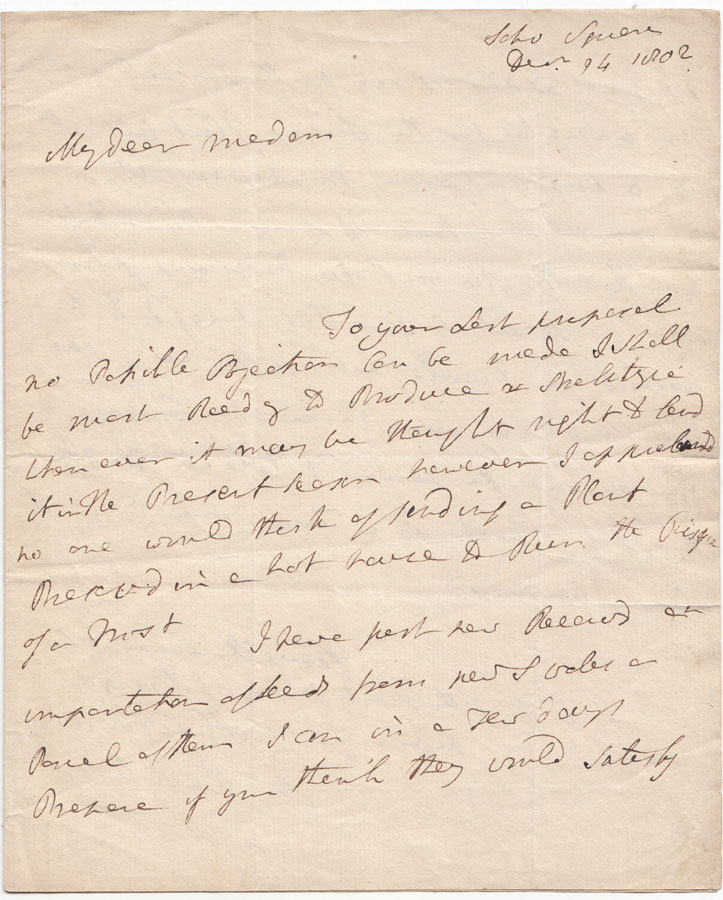 Soho Square
Decr. 24 1802
My dear madam
To your Last proposal
no Possible Objection Can be made I shall
be most Ready to Produce a Strelitzia
when ever it may be thought right to Send
it in the Present season however I apprehend
no one would think of sending a Plant
Preservd in a hot house to Run the Risque
of a Frost I have just now Receivd an
importation of seeds from new S wales a
Parcel of them I can in a Few days
Prepare if you think they would Satisfy